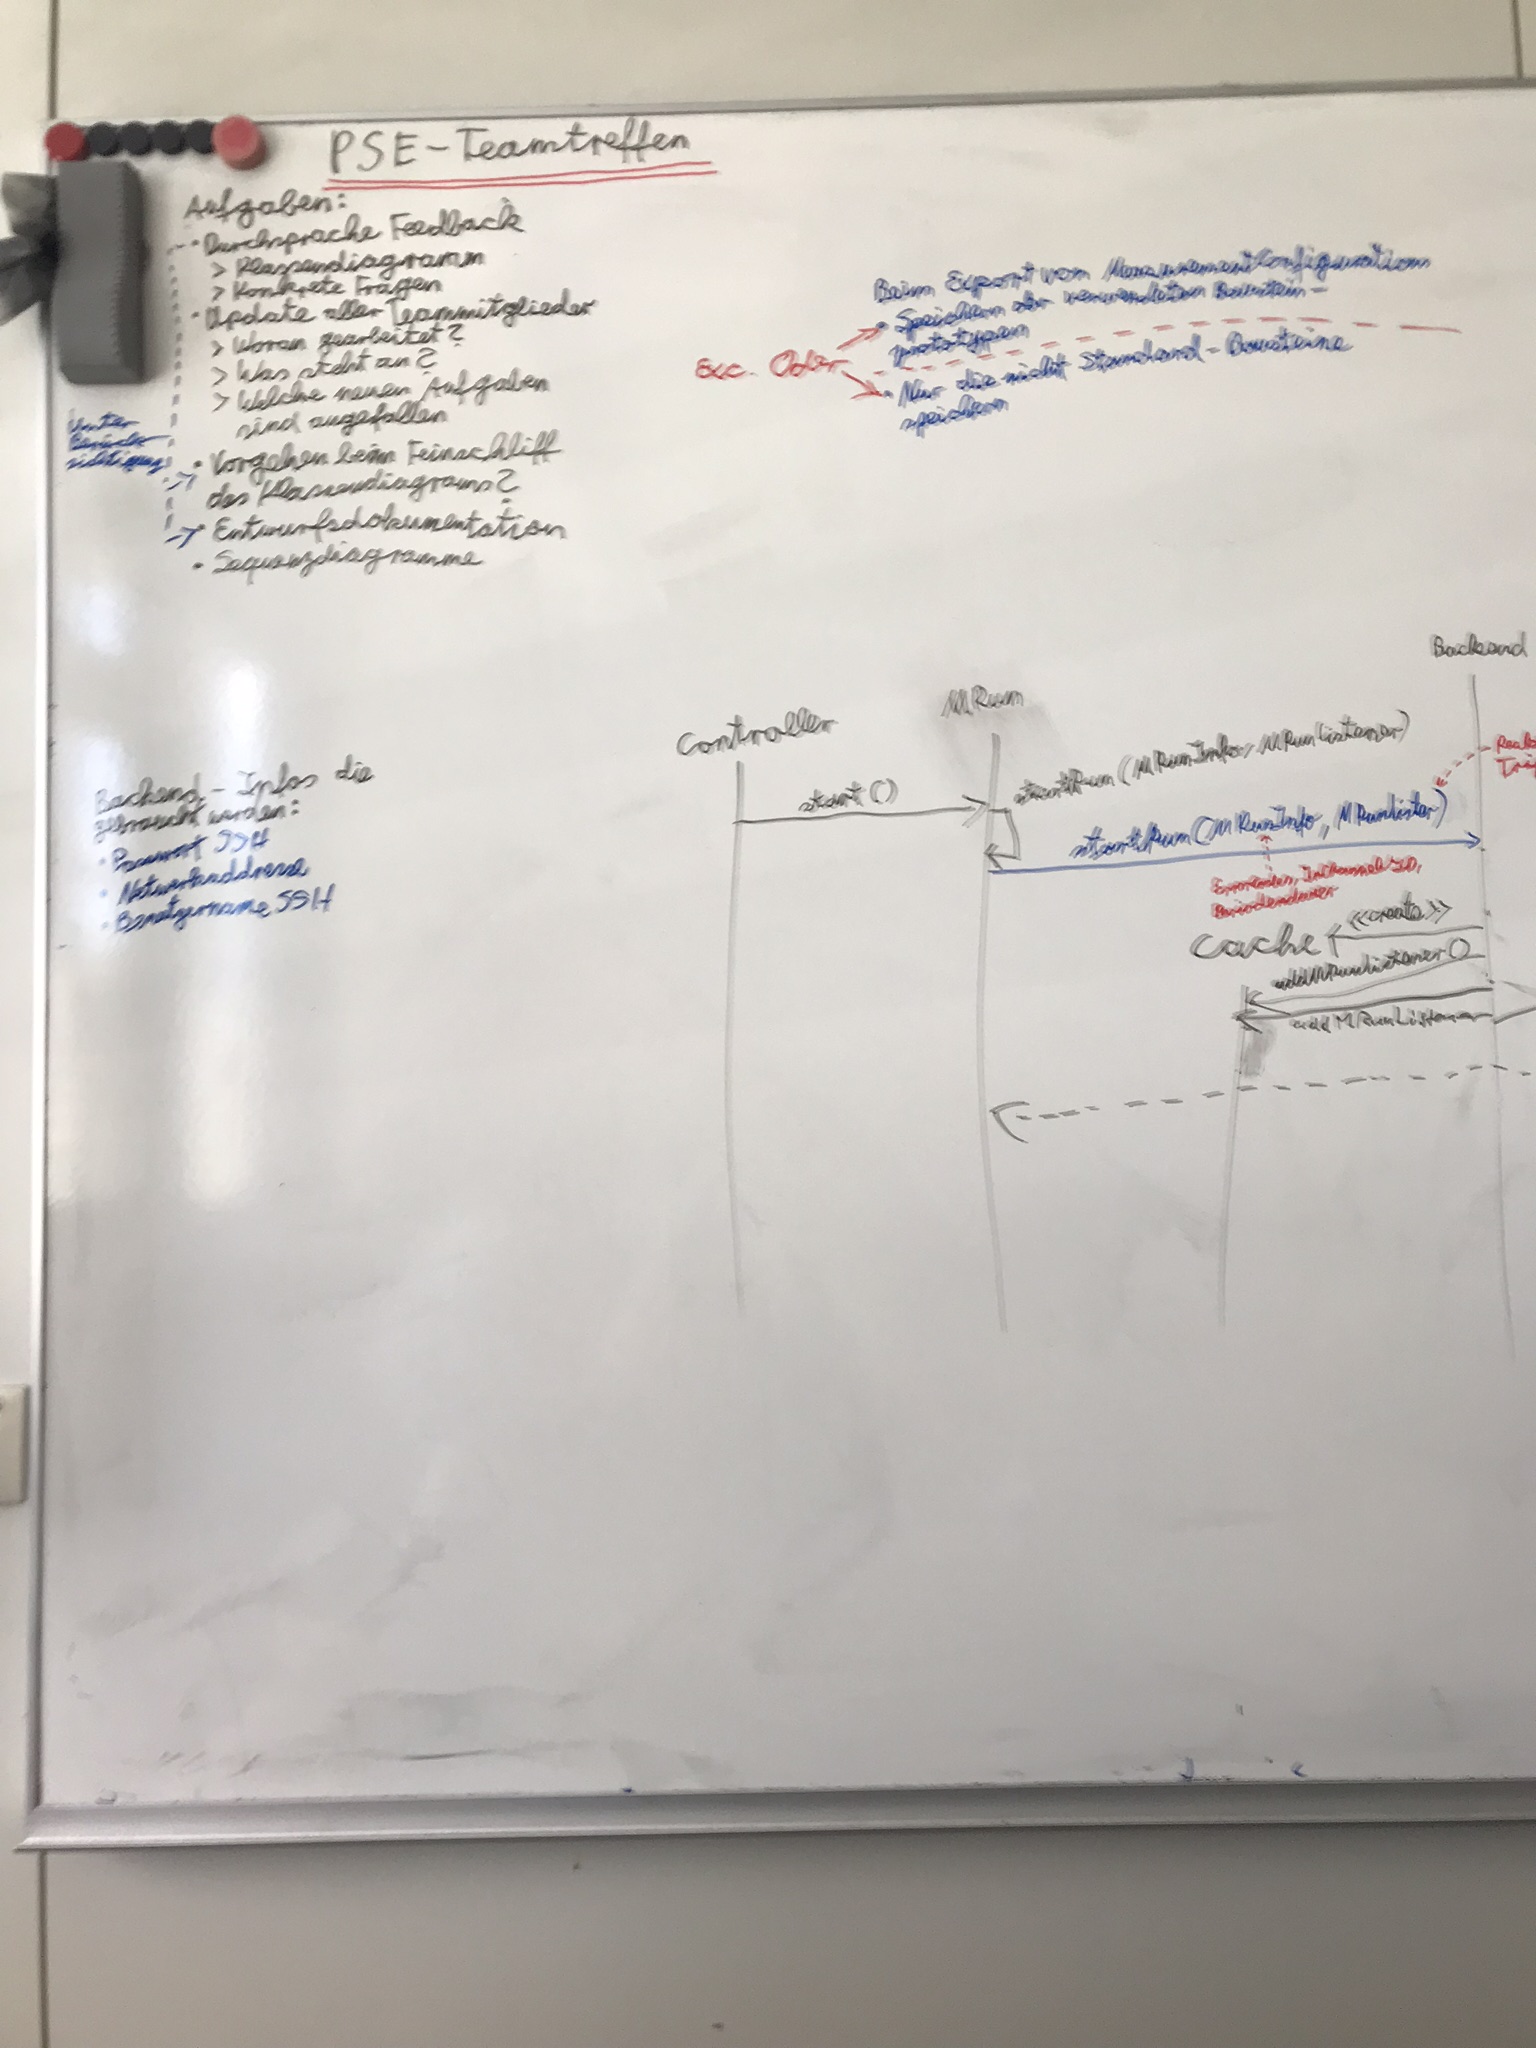 PSE-Teamtreffen
Aufgaben:
• Durchsprache Feedback
> Klassendiagramm
> Konkrete Fragen
• Update aller Teammitglieder
> Woran gearbeitet?
> Was steht an?
> Welche neuen Aufgaben
sind angefallen
• Vorgehen beim Feinschliff
des Klassendiagrams?
• Entwurfsdokumentation
• Sequenzdiagramme
Unter
Berück-
sichtigung
Beim Export von MeasurementConfigurations
• Speichern der verwendeten Baustein-
prototypen
Exc. Oder
• Nur die nicht Standard-Bausteine
speichern
Backend-Infos die
gebraucht werden:
• Passwort SSH
• Netwerkaddresse
• Benutzername SSH
Controller
MRun
Backend
start()
startRun(MRunInfo, MRunListener)
startRun(MRunInfo, MRunLister)
Periodendauer
<<create>>
Cache
addMRunListener()
addMRunListener